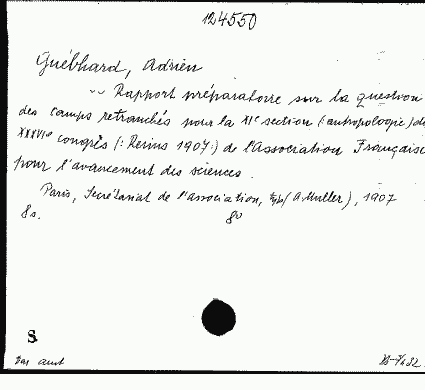 124550
Guébhard, Adrien
-- Rapport préparatoire sur la question
des camps retranchés pour la XIe section (:anthropologie) du
XXXVIe congrès (: Reims 1907:) de l'Association Française
pour l'avancement des sciences.
Paris, Secrétariat de l'association, typ (A. Muller), 1907
8s. 8o
S